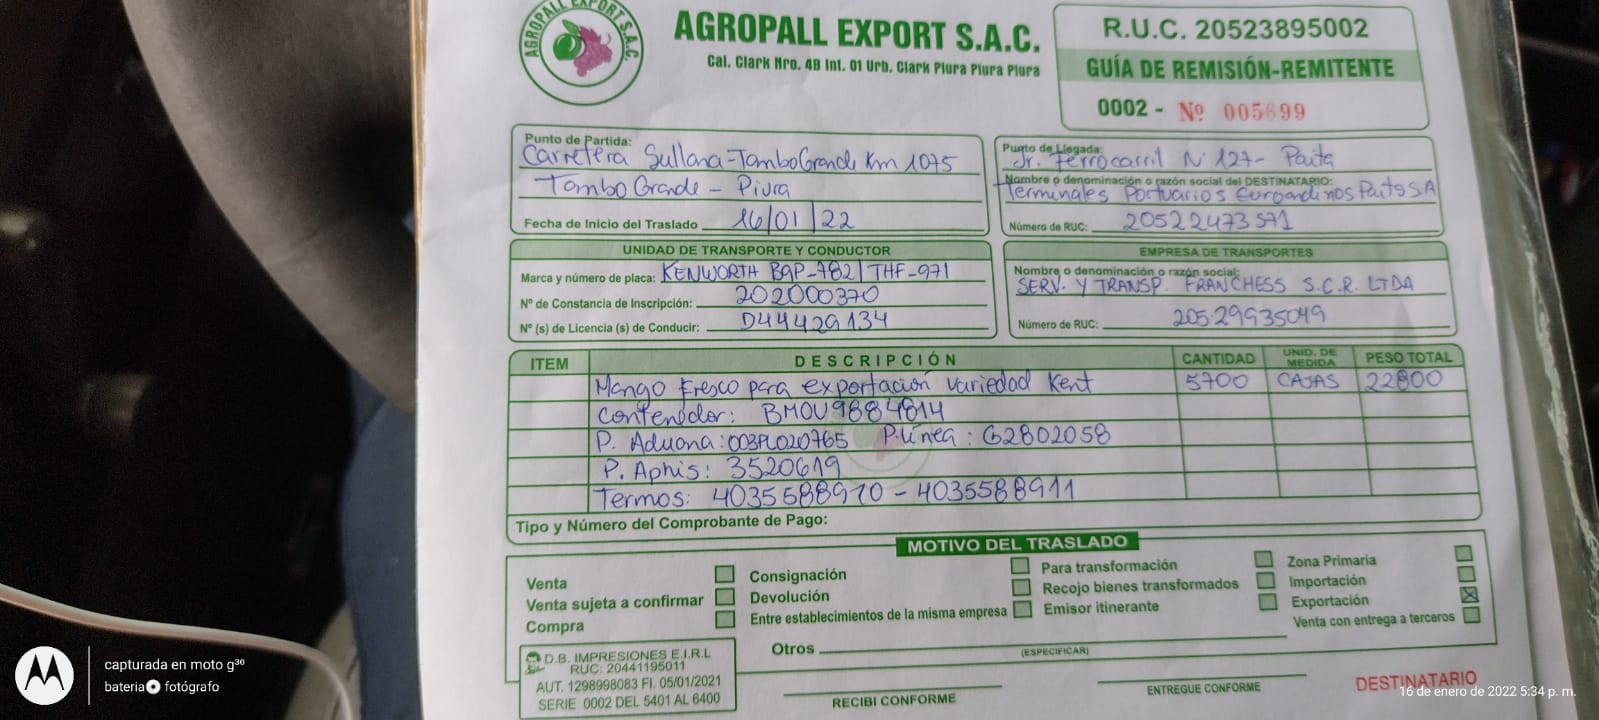 AGROPALL EXPORT S.A.C.
AGROPALL EXPORT S.A.C.
Cal. Clark Nro. 48 Int. 01 Urb. Clark Piura Piura Piura
R.U.C. 20523895002
GUÍA DE REMISIÓN-REMITENTE
0002 - Nº 005699
Punto de Partida:
Carretera Sullana-TamboGrande Km 1075
TamboGrande - Piura
Fecha de Inicio del Traslado 16/01/22
Punto de Llegada:
Jr. Ferrocarril N° 127- Paita
Nombre o denominación o razón social del DESTINATARIO:
Terminales Portuarios Euroandinos Paita SA
Número de RUC: 20522473571
UNIDAD DE TRANSPORTE Y CONDUCTOR
Marca y número de placa: KENWORTH B9P-782/THF-971
Nº de Constancia de Inscripción: 202000370
Nº (s) de Licencia (s) de Conducir: D44429134
EMPRESA DE TRANSPORTES
Nombre o denominación o razón social:
SERV. Y TRANSP. FRANCHESS S.C.R. LTDA
Número de RUC: 20529935049
ITEM DESCRIPCIÓN CANTIDAD UNID. DE MEDIDA PESO TOTAL
Mango Fresco para exportación variedad Kent 5700 CAJAS 22800
Contenedor: BMOU9884814
P. Aduana: 003PL020765 P.línea: G2802058
P. Aphis: 3520619
Termos: 4035588910 - 4035588911
Tipo y Número del Comprobante de Pago:
MOTIVO DEL TRASLADO
Venta
Venta sujeta a confirmar
Compra
Consignación
Devolución
Entre establecimientos de la misma empresa
Para transformación
Recojo bienes transformados
Emisor itinerante
Zona Primaria
Importación
Exportación X
Venta con entrega a terceros
Otros
(ESPECIFICAR)
D.B. IMPRESIONES E.I.R.L
RUC: 20441195011
AUT. 1298998083 FI. 05/01/2021
SERIE 0002 DEL 5401 AL 6400
RECIBI CONFORME
ENTREGUE CONFORME
DESTINATARIO
capturada en moto g³⁰
bateria fotógrafo
16 de enero de 2022 5:34 p. m.